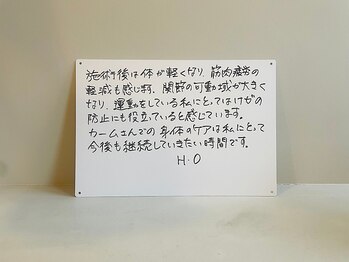 施術後は体が軽くなり、筋肉疲労の
軽減も感じます、関節の可動域が大きく
なり、運動をしている私にとってはけがの
防止にも役立っていると感じています。
カームさんでの身体のケアは私にとって
今後も継続していきたい時間です。
H.O